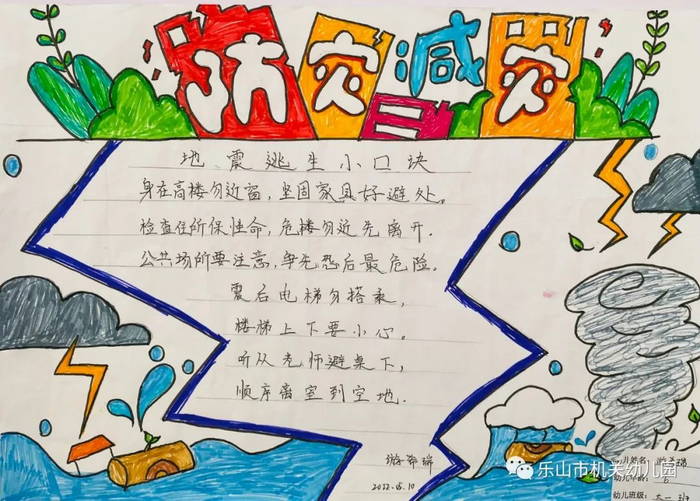 防灾减灾
地震逃生小口诀
身在高楼勿近窗，坚固家具好避处。
检查住所保性命，危楼勿近先离开.
公共场所要注意，争先恐后最危险。
震后电梯勿搭乘，
楼梯上下要小心。
听从老师避桌下，
顺序离室到空地.
2022.5.10
幼儿姓名:
幼儿年龄: 6
幼儿班级: 大一班
乐山市机关幼儿园